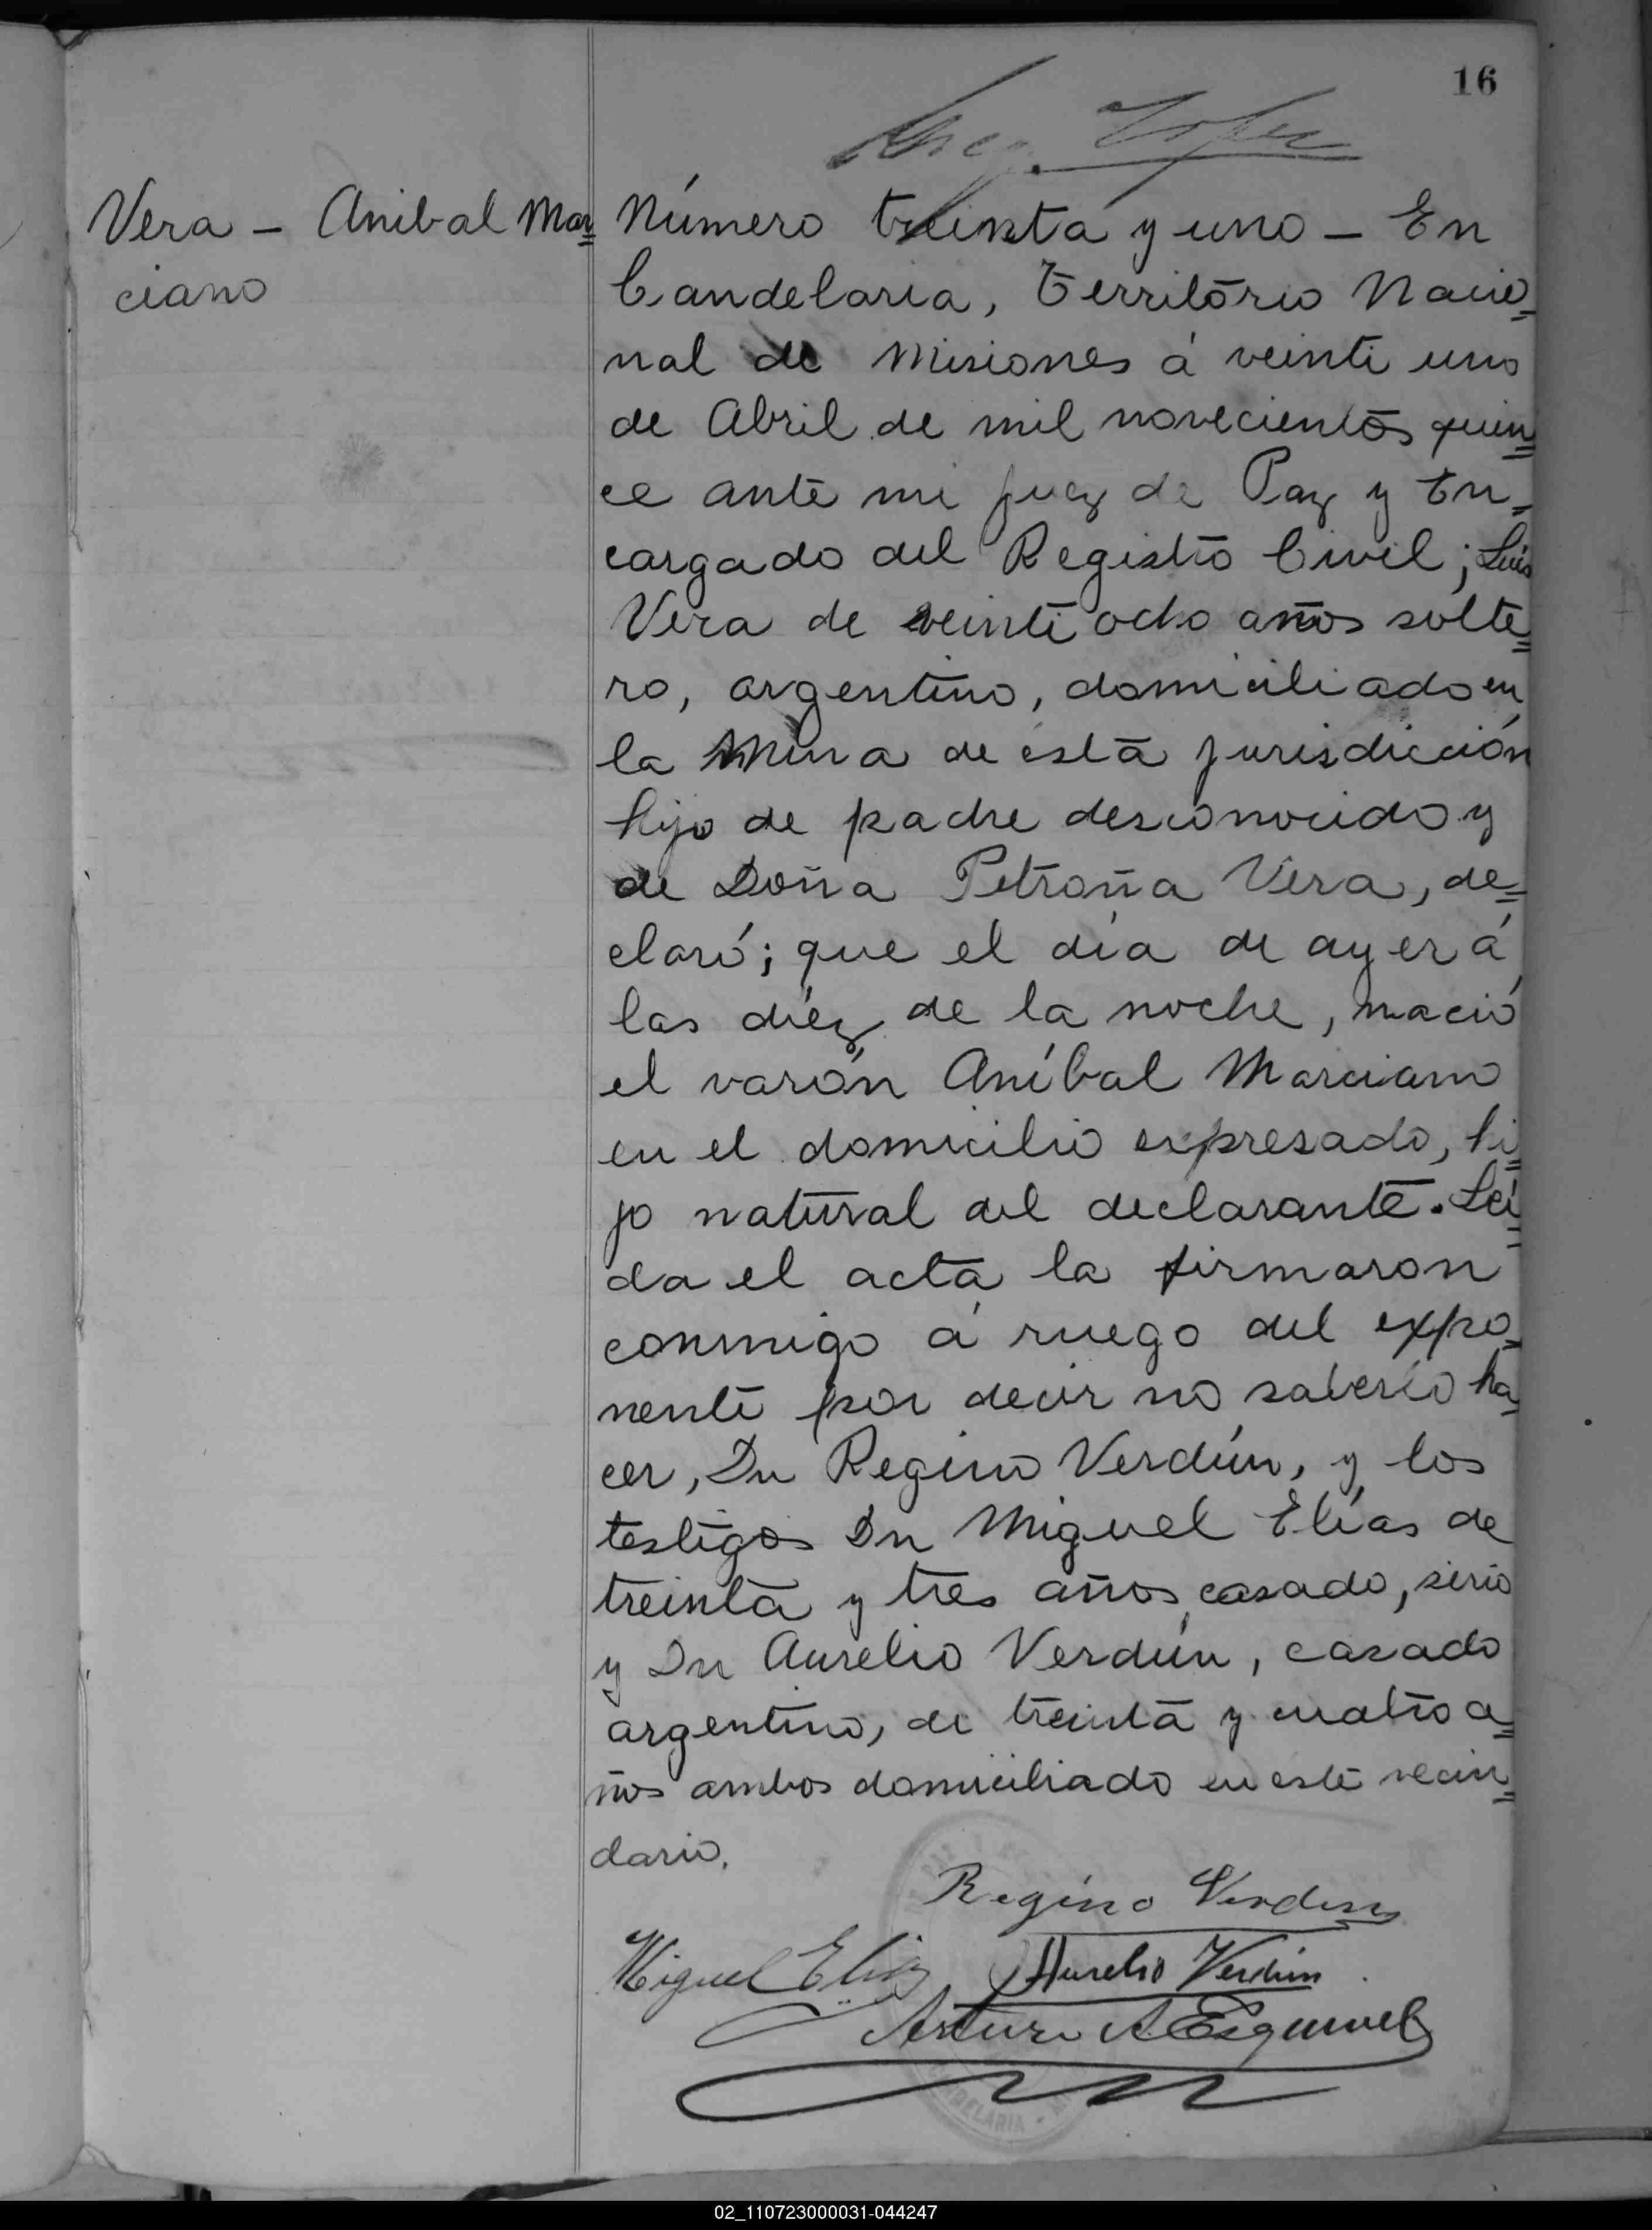 16
Vera - Anibal Mar=
ciano
Número treinta y uno - En
Candelaria, Território Nacio=
nal de Misiones á veinti uno
de Abril de mil novecientos quin=
ce ante mi Juez de Paz y En=
cargado del Registro Civil; Luis
Vera de veinti ocho años solte=
ro, argentino, domiciliado en
la Mina de ésta jurisdicción
hijo de padre desconocido y
de Doña Petroña Vera, de=
claró; que el día de ayer á
las diéz de la noche, nació
el varón Aníbal Marciano
en el domicilio expresado, hi=
jo natural del declarante. Leí=
da el acta la firmaron
conmigo á ruego del expo=
nente por decir no saberlo ha=
cer, Dn Regino Verdún, y los
testigos Dn Miguel Elías de
treinta y tres años, casado, sirio
y Dn Aurelio Verdún, casado
argentino, de treinta y cuatro a=
ños ambos domiciliado en este vecin=
dario.
Regino Verdun
Miguel Elias Aurelio Verdún
Arturo A Esquivel
02_110723000031-044247